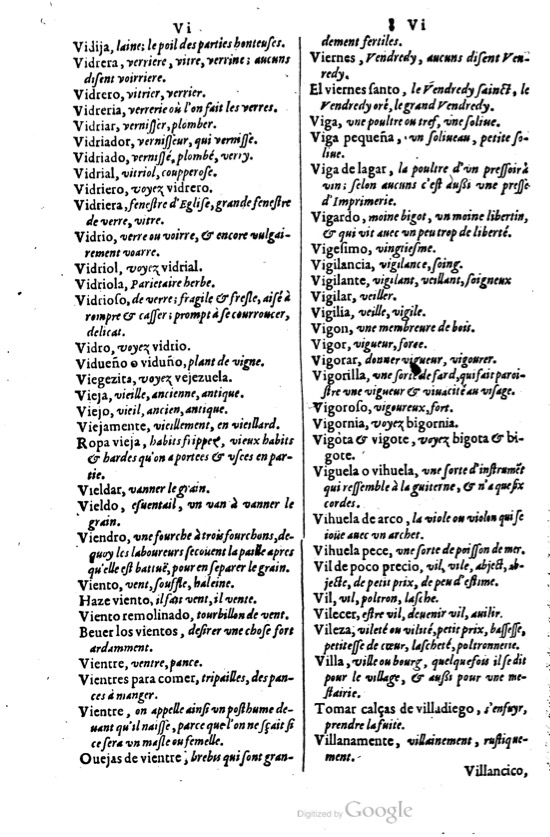 Vi
Vidija, laine; le poil des parties honteuses.
Vidrera, verriere, vitre, verrine; aucuns
disent voirriere.
Vidrero, vitrier, verrier.
Vidreria, verrerie où l'on fait les verres.
Vidriar, vernisser, plomber.
Vidriador, vernisseur, qui vernisse.
Vidriado, vernissé, plombé, verry.
Vidrial, vitriol, coupperose.
Vidriero, voyez vidrero.
Vidriera, fenestre d'Eglise, grande fenestre
de verre, vitre.
Vidrio, verre ou voirre, & encore vulgai-
rement voarre.
Vidriol, voyez vidrial.
Vidriola, Parietaire herbe.
Vidrioso, de verre; fragile & fresle, aisé à
rompre & casser; prompt à se courroucer,
delicat.
Vidro, voyez vidrio.
Vidueño o viduño, plant de vigne.
Viegezita, voyez vejezuela.
Vieja, vieille, ancienne, antique.
Viejo, vieil, ancien, antique.
Viejamente, vieillement, en vieillard.
Ropa vieja, habits frippez, vieux habits
& hardes qu'on a portees & vsees en par-
tie.
Vieldar, vanner le grain.
Vieldo, esuentail, vn van à vanner le
grain.
Viendro, vne fourche à trois fourchons, de-
quoy les laboureurs secoüent la paille apres
qu'elle est battuë, pour en separer le grain.
Viento, vent, souffle, haleine.
Haze viento, il fait vent, il vente.
Viento remolinado, tourbillon de vent.
Beuer los vientos, desirer vne chose fort
ardamment.
Vientre, ventre, pance.
Vientres para comer, tripailles, des pan-
ces à manger.
Vientre, on appelle ainsi vn posthume de-
uant qu'il naisse, parce que l'on ne sçait si
ce sera vn masle ou femelle.
Ouejas de vientre, brebis qui sont gran-
Vi
dement fertiles.
Viernes, Vendredy, aucuns disent Ven-
redy.
El viernes santo, le Vendredy sainct, le
Vendredy oré, le grand Vendredy.
Viga, vne poultre ou tref, vne soliue.
Viga pequeña, vn soliueau, petite so-
liue.
Viga de lagar, la poultre d'vn pressoir à
vin; selon aucuns c'est aussi vne presse
d'Imprimerie.
Vigardo, moine bigot, vn moine libertin,
& qui vit auec vn peu trop de liberté.
Vigesimo, vingtiesme.
Vigilancia, vigilance, soing.
Vigilante, vigilant, veillant, soigneux
Vigilar, veiller.
Vigilia, veille, vigile.
Vigon, vne membreure de bois.
Vigor, vigueur, force.
Vigorar, donner vigueur, vigourer.
Vigorilla, vne sorte de fard, qui fait paroi-
stre vne vigueur & viuacité au visage.
Vigoroso, vigoureux, fort.
Vigornia, voyez bigornia.
Vigota & vigote, voyez bigota & bi-
gote.
Viguela o vihuela, vne sorte d'instrumẽt
qui ressemble à la guiterne, & n'a que six
cordes.
Vihuela de arco, la viole ou violon qui se
ioüe auec vn archet.
Vihuela pece, vne sorte de poisson de mer.
Vil de poco precio, vil, vile, abject, ab-
jecte, de petit prix, de peu d'estime.
Vil, vil, poltron, lasche.
Vilecer, estre vil, deuenir vil, auilir.
Vileza, vileté ou vilité, petit prix, bassesse,
petitesse de cœur, lascheté, poltronnerie.
Villa, ville ou bourg, quelquefois il se dit
pour le village, & aussi pour vne me-
stairie.
Tomar calças de villadiego, s'enfuyr,
prendre la fuite.
Villanamente, villainement, rustique-
ment.
Villancico,
Digitized by Google